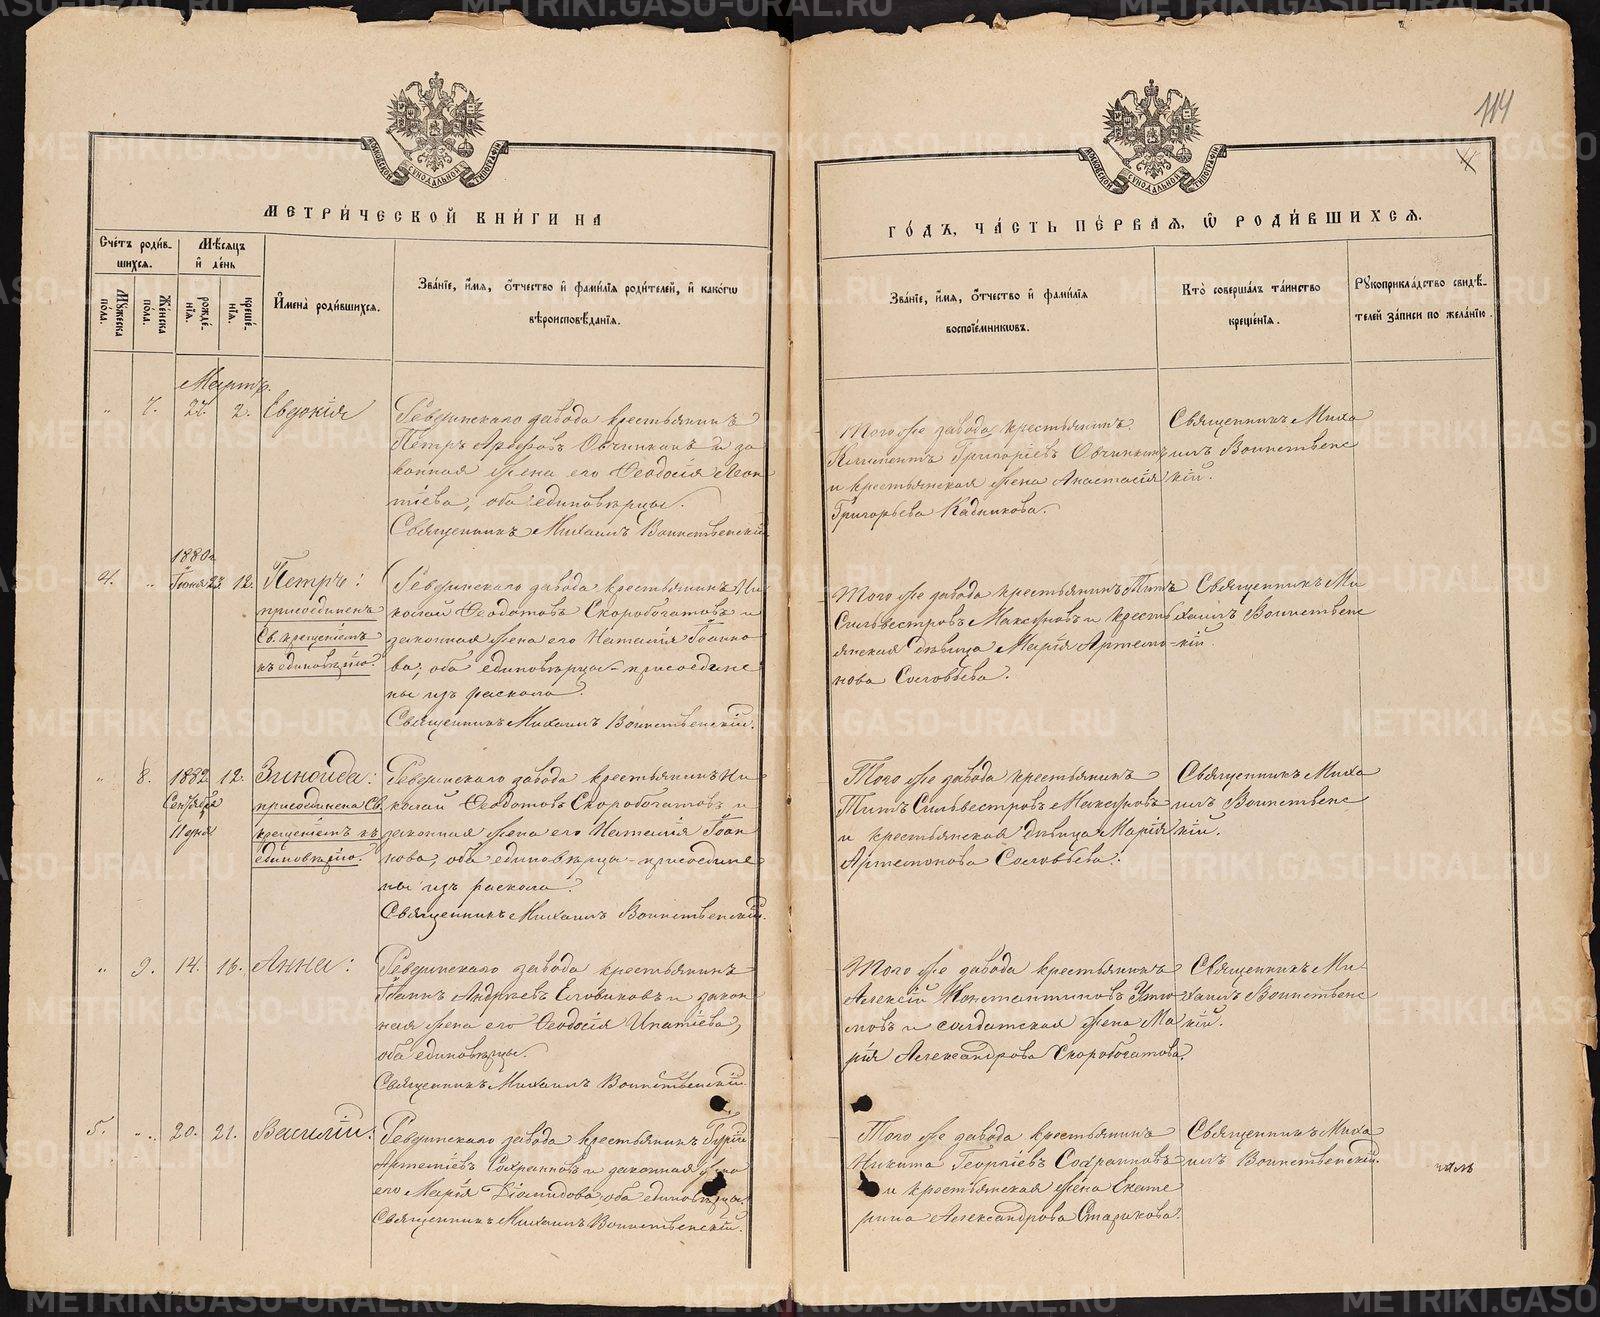 114
МОСКОВСКОЙ СѴНОДАЛЬНОЙ ТИПОГРАФІИ
МЕТРИ́ЧЕСКОЙ КНИ́ГИ НА
Сче́тъ роди́в-
шихсѧ.
Мѣ́сѧцъ
и҆ де́нь
Мꙋ́жеска
по́ла.
Же́нска
по́ла.
рожде́-
нїѧ.
креще́-
нїѧ.
И҆мена̀ роди́вшихсѧ.
Зва́нїе, и҆́мѧ, ѻ҆́тчество и҆ фами́лїѧ роди́телей, и҆ како́гѡ
вѣроисповѣ́данїѧ.
Мартъ.
" 7. 27. 2. Евдокія
Ревдинскаго завода крестьянинъ
Петръ Овчинкинъ и за
конная жена его Ѳеодосія Леон
тіева, оба единовѣрцы.
Священникъ Михаилъ Воинственскій
4. " 1880 г. Іюня 23. 12. Петръ:
присоединенъ
Св. крещеніемъ
къ единовѣрію.
Ревдинскаго завода крестьянинъ Ни
колай Ѳеодотовъ Скоробогатовъ и
законная жена его Наталія Іоанно
ва, оба единовѣрцы - присоедине
ны изъ раскола.
Священникъ Михаилъ Воинственскій.
" 8. 1882 Сентября 11 дня 12. Зиноида:
присоединена Св.
крещеніемъ къ
единовѣрію.
Ревдинскаго завода крестьянинъ Ни
колай Ѳеодотовъ Скоробогатовъ и
законная жена его Наталія Іоан
нова, оба единовѣрцы - присоедине
ны изъ раскола.
Священникъ Михаилъ Воинственскій.
" 9. 14. 16. Анна:
Ревдинскаго завода крестьянинъ
Іоаннъ Андреевъ Еловиковъ и закон
ная жена его Ѳеодосія Ипатіева,
оба единовѣрцы.
Священникъ Михаилъ Воинственскій
5. " " 20. 21. Василій:
Ревдинскаго завода крестьянинъ Гурій
Артеміевъ Сохранновъ и законная жена
его Марія Діомидова, оба единовѣрцы.
Священникъ Михаилъ Воинственскій.
ГО́ДЪ, ЧА́СТЬ ПЕ́РВАѦ, Ѡ҆ РОДИ́ВШИХСѦ.
Зва́нїе, и҆́мѧ, ѻ҆́тчество и҆ фами́лїѧ
воспрїе́мникѡвъ.
Кто̀ соверша́лъ та́инство
креще́нїѧ.
Рꙋкоприкла́дство свидѣ́-
телей за́писи по жела́нїю.
Того же завода крестьянинъ
Климентъ Григоріевъ Овчинкинъ
и крестьянская жена Анастасія
Григорьева Кадникова.
Священникъ Миха
илъ Воинственс
кій.
Того же завода крестьянинъ Титъ
Сильвестровъ Максимовъ и кресть
янская дѣвица Марія Артемо-
нова Соловьева.
Священникъ Ми
хаилъ Воинственс
кій.
Того же завода крестьянинъ
Титъ Сильвестровъ Максимовъ
и крестьянская дѣвица Марія
Артемонова Соловьева.
Священникъ Миха
илъ Воинственс
кій.
Того же завода крестьянинъ
Алексій Константиновъ Утю-
мовъ и солдатская жена Ма
рія Александрова Скоробогатова.
Священникъ Ми-
хаилъ Воинственс
кій.
Того же завода крестьянинъ
Никита Георгіевъ Сохранновъ
и крестьянская жена Екате
рина Александрова Старикова.
Священникъ Миха
илъ Воинственскій.
METRIKI.GASO-URAL.RU